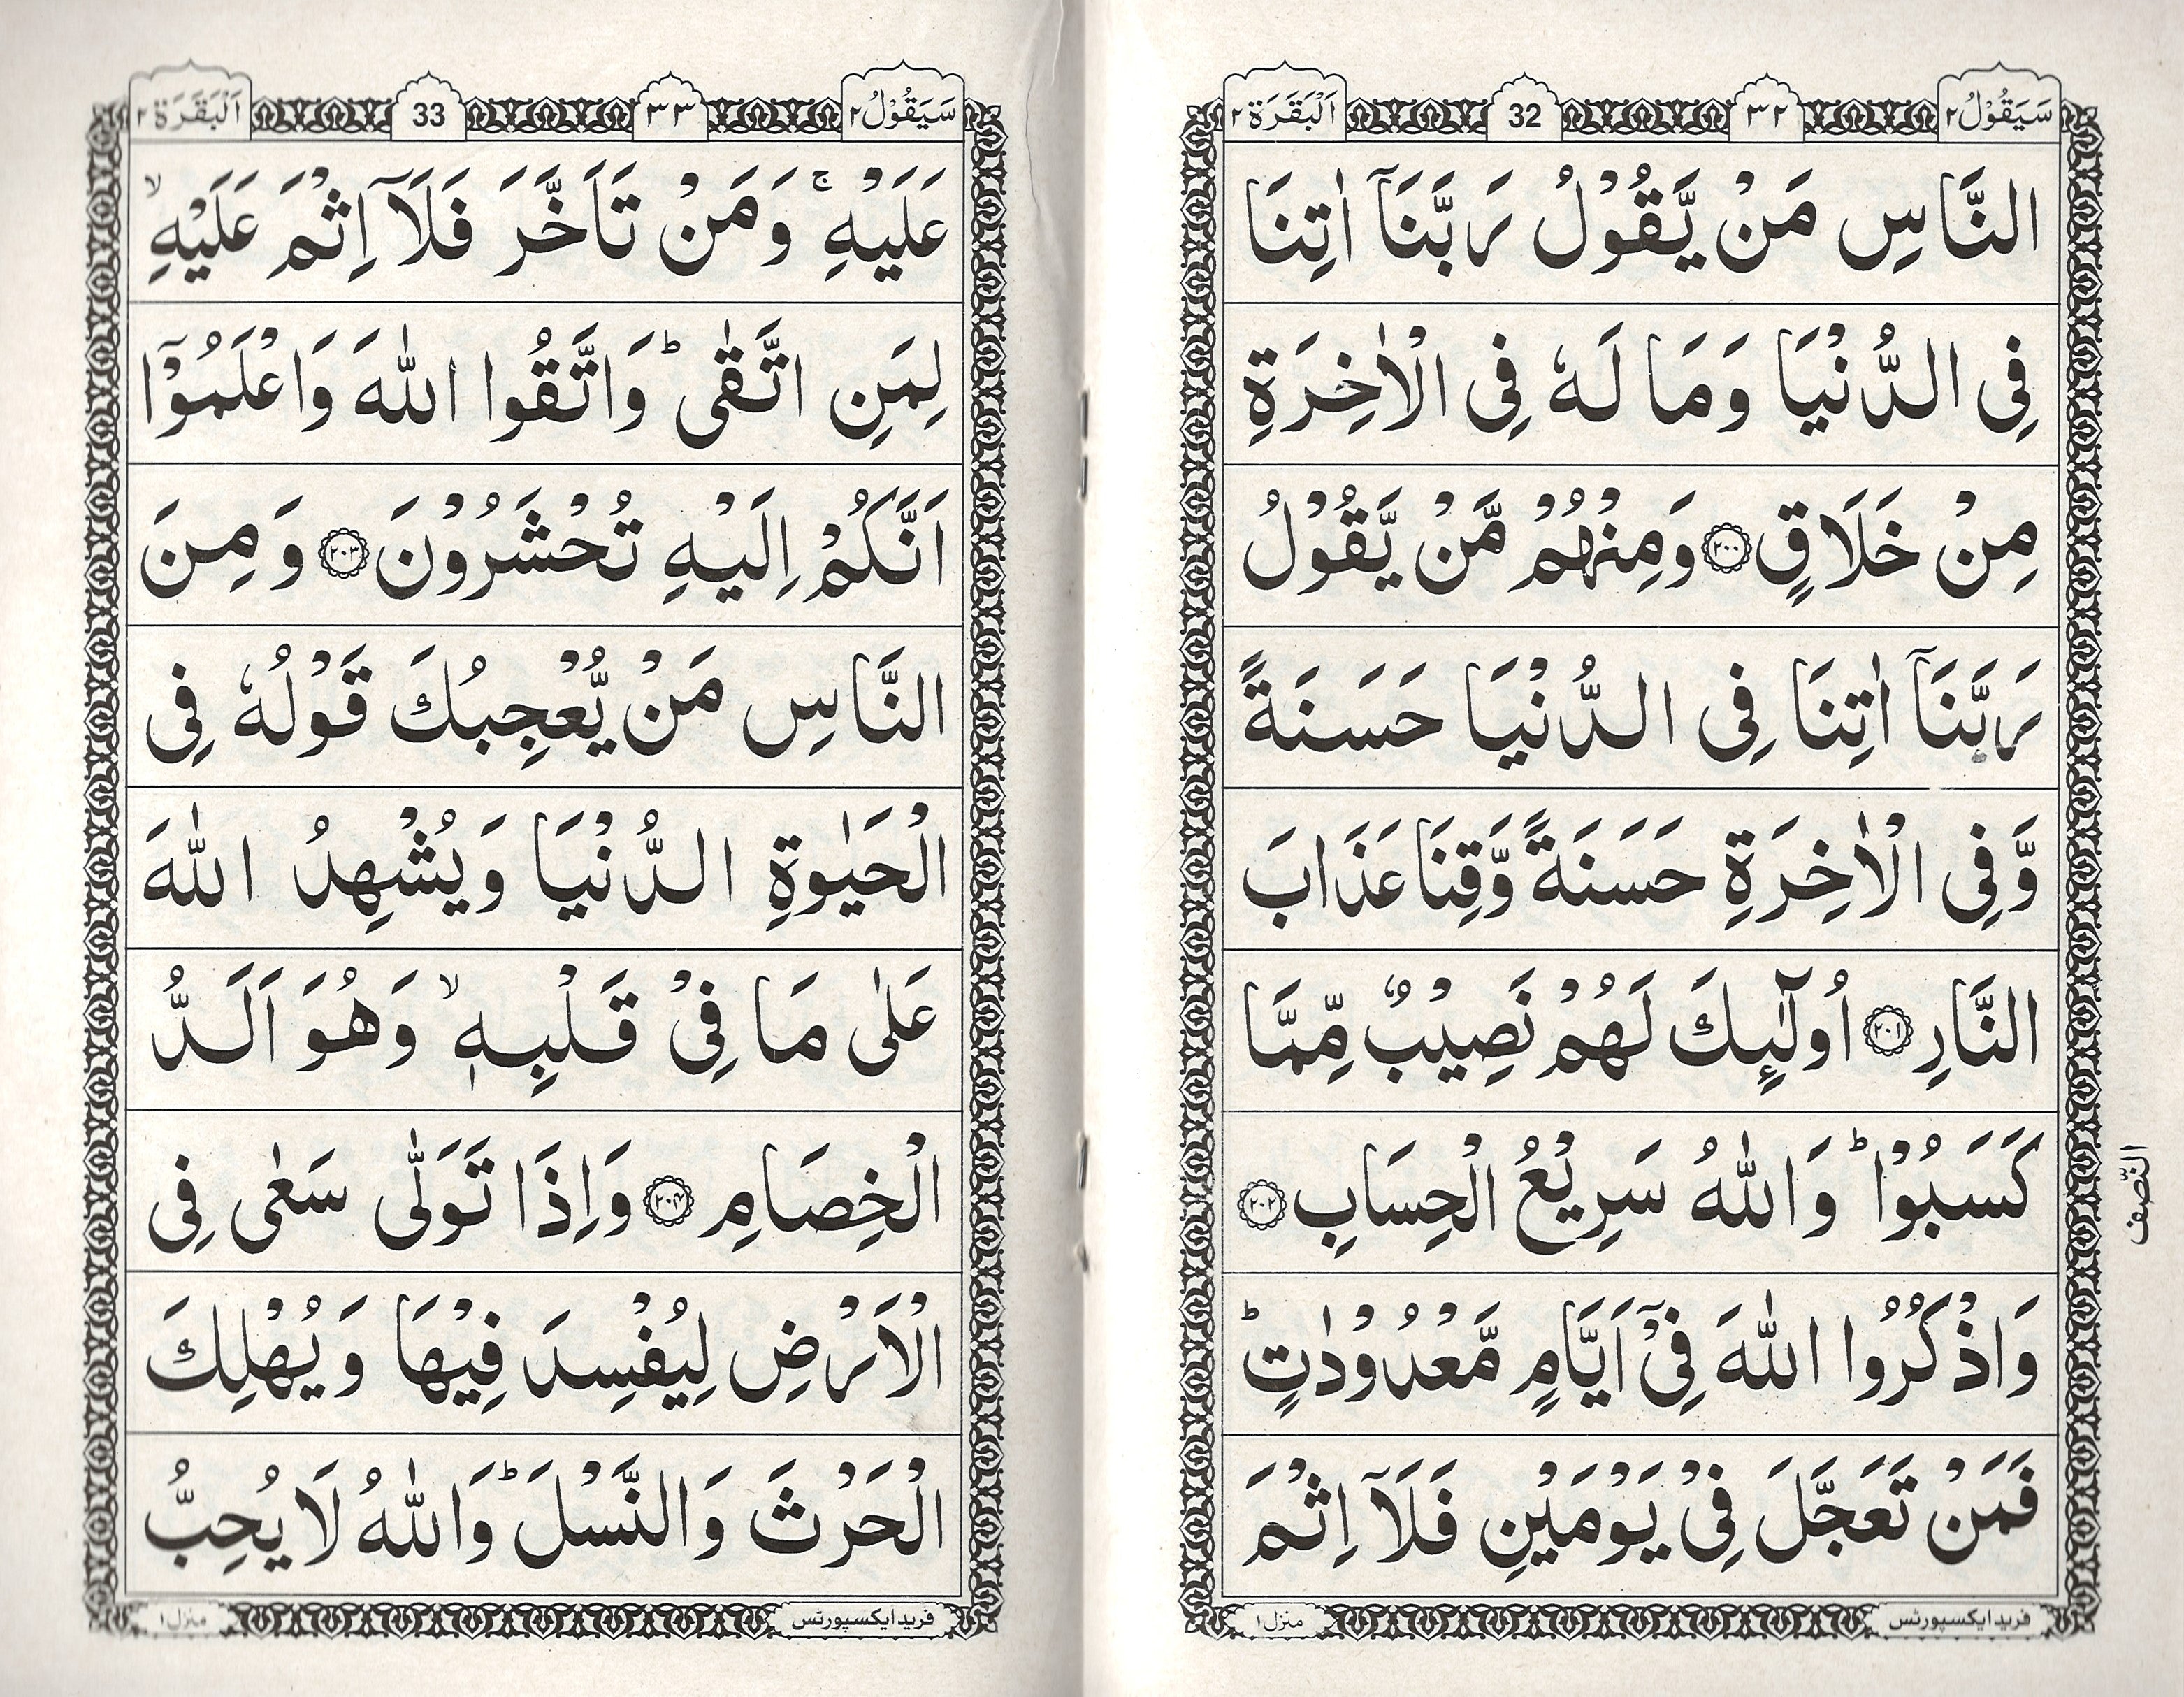 سَيَقُوْلُ ٢
٣٢
32
اَلْبَقَرَة ٢
النَّاسِ مَنْ يَّقُوْلُ رَبَّنَاۤ اٰتِنَا
فِى الدُّنْيَا وَمَا لَهٗ فِى الْاٰخِرَةِ
مِنْ خَلَاقٍ ﴿٢٠٠﴾ وَمِنْهُمْ مَّنْ يَّقُوْلُ
رَبَّنَاۤ اٰتِنَا فِى الدُّنْيَا حَسَنَةً
وَّفِى الْاٰخِرَةِ حَسَنَةً وَّقِنَا عَذَابَ
النَّارِ ﴿٢٠١﴾ اُولٰٓئِكَ لَهُمْ نَصِيْبٌ مِّمَّا
كَسَبُوْا ؕ وَاللّٰهُ سَرِيْعُ الْحِسَابِ ﴿٢٠٢﴾
النّصف
وَاذْكُرُوا اللّٰهَ فِىْۤ اَيَّامٍ مَّعْدُوْدٰتٍ ؕ
فَمَنْ تَعَجَّلَ فِىْ يَوْمَيْنِ فَلَاۤ اِثْمَ
فرید ایکسپورٹس
منزل ١
سَيَقُوْلُ ٢
٣٣
33
اَلْبَقَرَة ٢
عَلَيْهِ ۚ وَمَنْ تَاَخَّرَ فَلَاۤ اِثْمَ عَلَيْهِ ۙ
لِمَنِ اتَّقٰى ؕ وَاتَّقُوا اللّٰهَ وَاعْلَمُوْۤا
اَنَّكُمْ اِلَيْهِ تُحْشَرُوْنَ ﴿٢٠٣﴾ وَمِنَ
النَّاسِ مَنْ يُّعْجِبُكَ قَوْلُهٗ فِى
الْحَيٰوةِ الدُّنْيَا وَيُشْهِدُ اللّٰهَ
عَلٰى مَا فِىْ قَلْبِهٖ ۙ وَهُوَ اَلَدُّ
الْخِصَامِ ﴿٢٠٤﴾ وَاِذَا تَوَلّٰى سَعٰى فِى
الْاَرْضِ لِيُفْسِدَ فِيْهَا وَيُهْلِكَ
الْحَرْثَ وَالنَّسْلَ ؕ وَاللّٰهُ لَا يُحِبُّ
فرید ایکسپورٹس
منزل ١